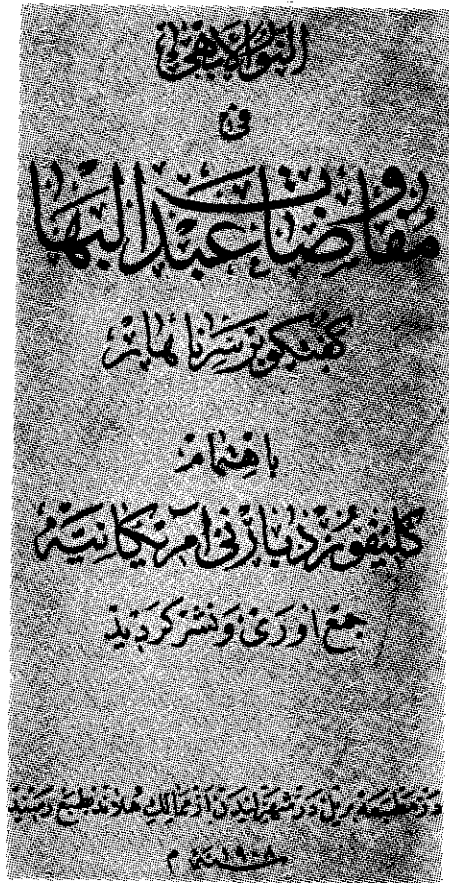 النور الابهى
فی
مفاوضات عبد البهاء
گفتگو بر سر ناهار
باهتمام
کلیفورد بارنی امریکانیه
جمع اوری و نشر گردید
در مطبعه بریل در شهر لیدن از ممالک هلاند طبع رسید
سنه ۱۹۰۸ م